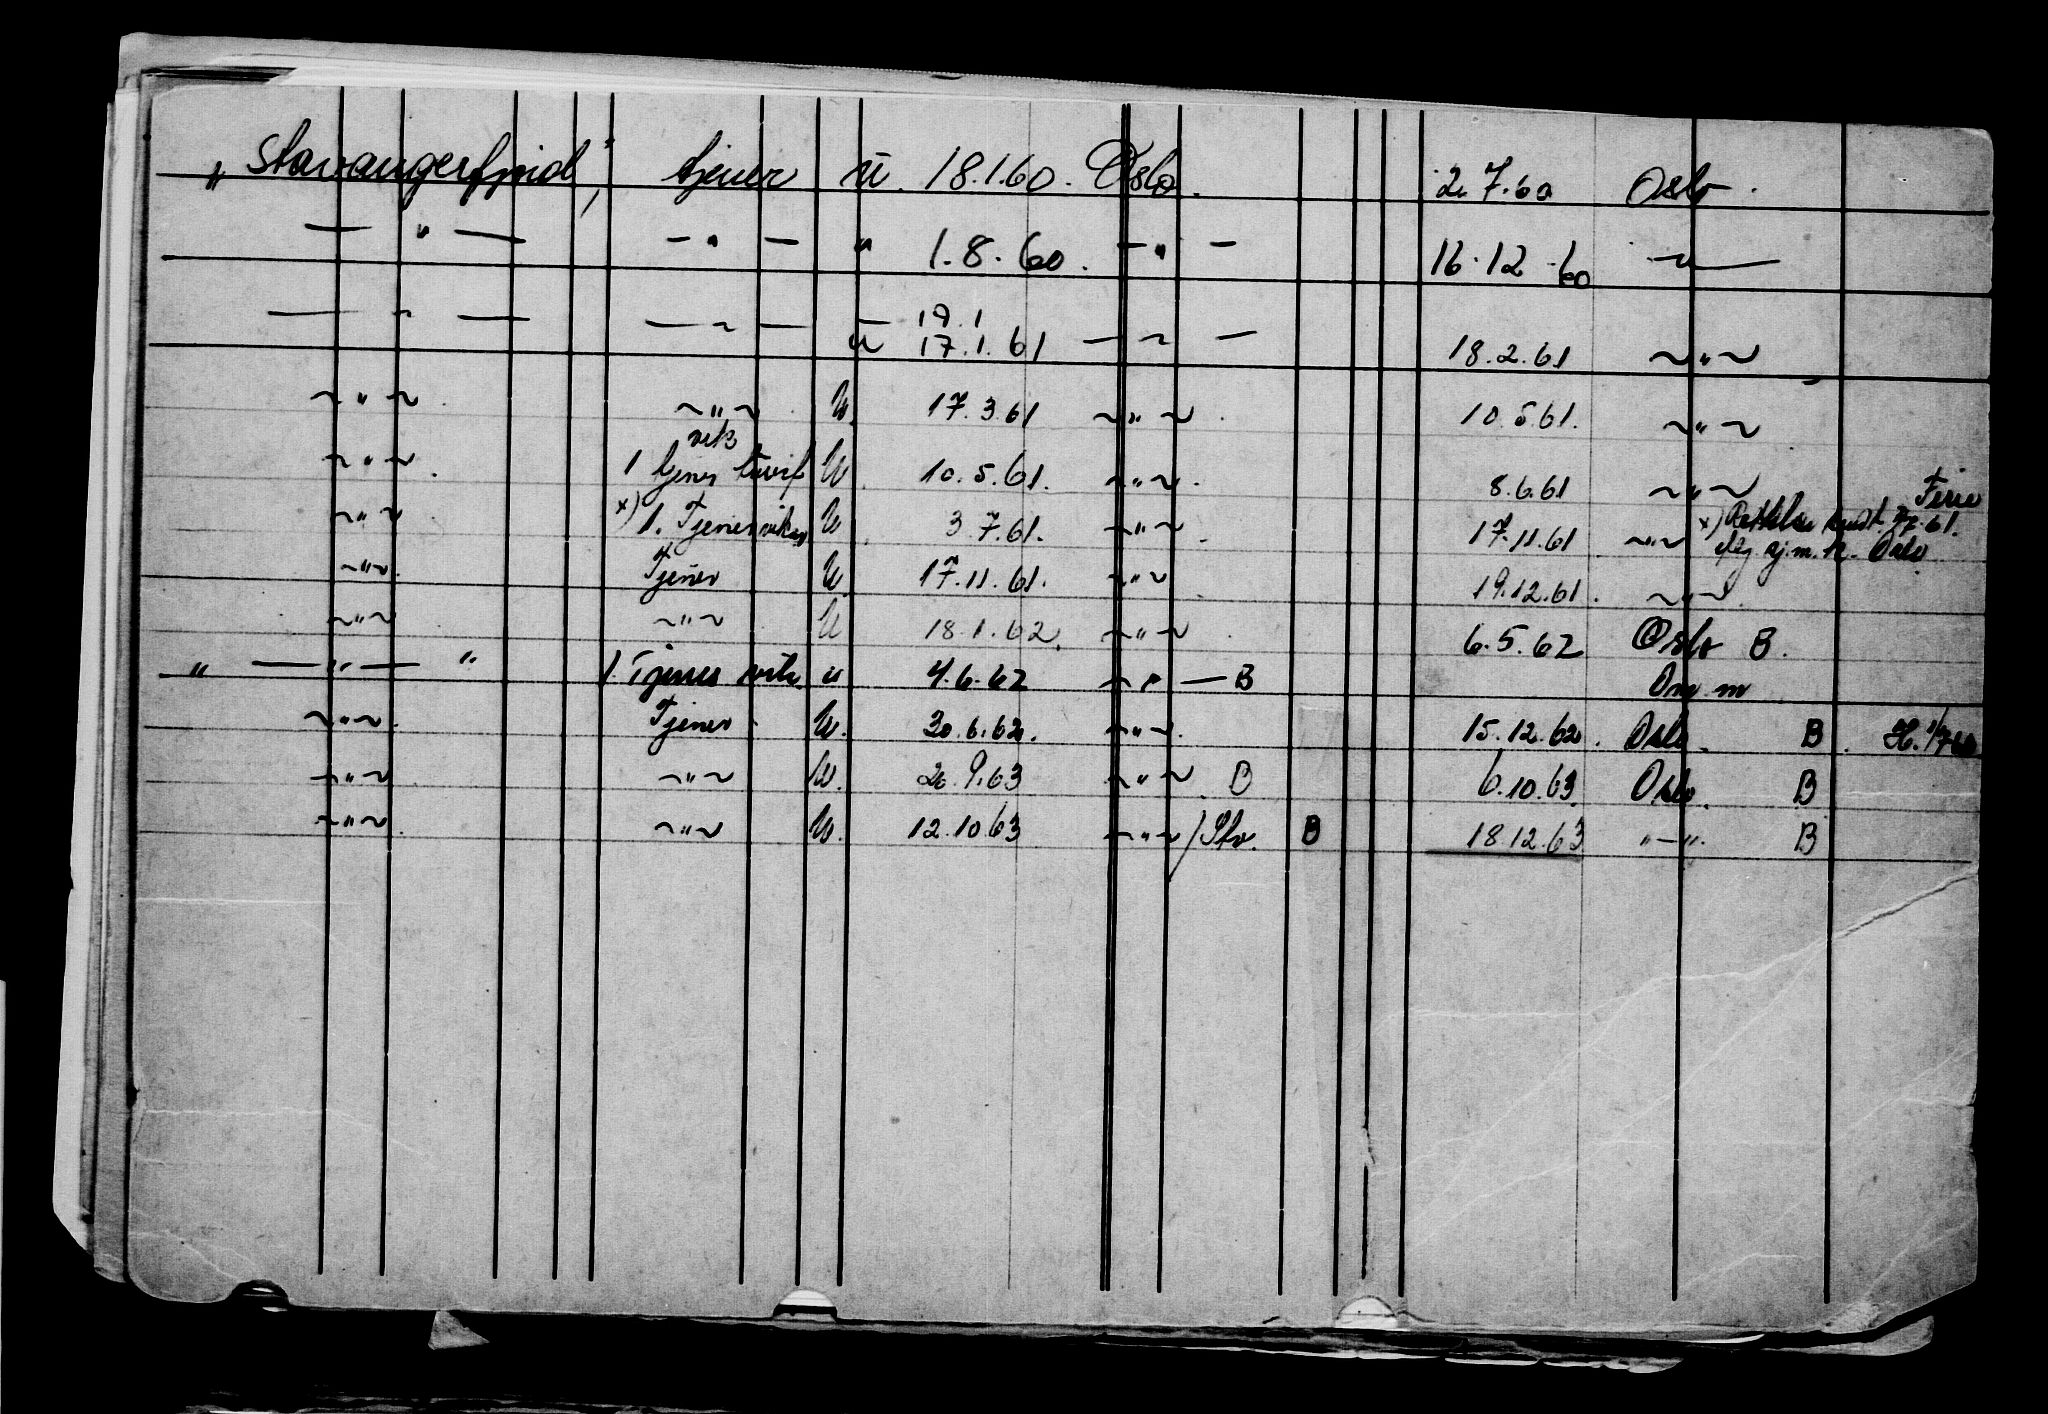 „ Stavangerfjord," tjener u. 18.1.60. Oslo. 2.7.60 Oslo.
— " — — " — " 1.8.60. — " — 16.12.60 — " —
— " — — " — — 19.1
u 17.1.61 — " — 18.2.61 ~ " ~
~ " ~ ~ " ~ U. 17.3.61 ~ " ~ 10.5.61. ~ " ~
vik
~ " ~ 1 tjener U. 10.5.61. ~ " ~ 8.6.61 ~ " ~ Ferie
~ " ~ x) 1. Tjener vikar U. 3.7.61. ~ " ~ 17.11.61 ~ " ~ x) 61. Oslo
~ " ~ Tjener U. 17.11.61. ~ " ~ 19.12.61. ~ " ~
~ " ~ ~ " ~ U 18.1.62. ~ " ~ 6.5.62 Oslo B.
„ — " — " 1. Tjener vik. u 4.6.62 ~ " — B m
~ " ~ Tjener U. 30.6.62. ~ " ~ 15.12.62. Oslo. B. H.
~ " ~ ~ " ~ U. 26.9.63 ~ " ~ B 6.10.63. Oslo. B
~ " ~ ~ " ~ U. 12.10.63 ~ " ~ /Stv. B 18.12.63 " — ". B